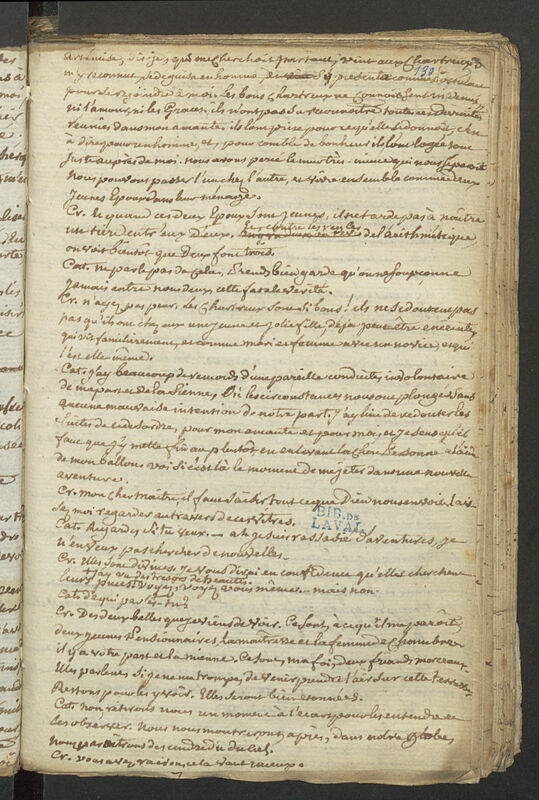 artemise, dis-je, qui me cherchoit partout, vint aux Chartreux
130
m'y reconnut, je déguisé en homme, s'y présenta comme postulan
pour se rejoindre à moi. les bons Chartreux ne connoissent ni Venus
ni l'amour, ni les Graces. ils n'ont pas su reconnoître toutes ces déesses
réunies dans mon amante. ils l'ont prise pour ce qu'elle se donnoit, c'est
à dire pour un homme, et, pour comble de bonheur ils l'ont logée tout
juste auprès de moi. nous avons percé le mur mitoyen qui nous séparoit
nous pouvons passer l'un chez l'autre, et vivre ensemble comme deux
jeunes Epoux dans leur ménage.
Cr. Et quand ces deux Epoux sont jeunes, il ne tarde pas à naître
un tiers entr'eux d'eux. et contre les règles de l'arithmétique
on voit bientôt que deux font trois.
Cat. ne parle pas de cela. Prends bien garde qu'on ne soupçonne
jamais entre nous deux cette fatale vérité.
Cr. n'ayez pas peur. les Chartreux sont si bons! ils ne se doutent pas
pas qu'ils ont chez eux une jeune et jolie fille, déjà peut être enceinte,
qui vit familièrement, et comme mari et femme avec un novice, et qui
l'est elle même.
Cat. j'ay beaucoup de remords d'une pareille conduite, involontaire
de ma part et de la sienne, où les circonstances nous ont plongés sans
aucune mauvaise intention de notre part. j'ay lieu de redouter les
suites de ce désordre, pour mon amante et pour moi, et je sens qu'il
faut que j'y mette fin au plustôt, en enlevant la chere Personne à l'aide
de mon ballon. voici s'il est là le moment de me jeter dans une nouvelle
aventure.
Cr. mon cher Maître, il faut tâcher tout ce que Dieu nous envoie, lais
sez moi regarder au travers de ces vitres.
Cat. Regardes si tu veux. — ah je suis rassasié d'aventures, je
n'en veux pas chercher de nouvelles.
BIB. DE
LAVAL
Cr. Elles sont divines. je vous dirai en confidence qu'elles cherchent
j'ay vu des trésors de beautés.
leurs puces. Voyez, voyez vous mêmes... mais non.
Cat. de qui parles-tu?
Cr. Des deux belles que je viens de voir. Ce sont, à ce qu'il me paroît,
deux jeunes Pensionnaires, la maîtresse et la femme de chambre
il y a votre part et la mienne. Ce sont, ma foi, deux friands morceaux
Elles parlent si je ne me trompe, de venir prendre l'air sur cette terrasse
Restons pour les y voir. Elles seront bien étonnées.
Cat. non retirons nous un moment à l'écart, pour les entendre et
les observer. Nous nous montrerons après, dans notre globe,
nous paroîtrons descendre du ciel.
Cr. vous avez raison, cela vaut mieux.